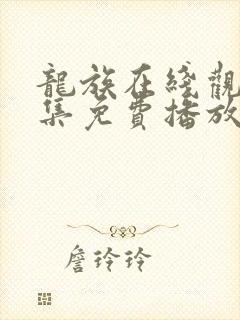 龍族在綫觀
集免費播放
詹玲玲